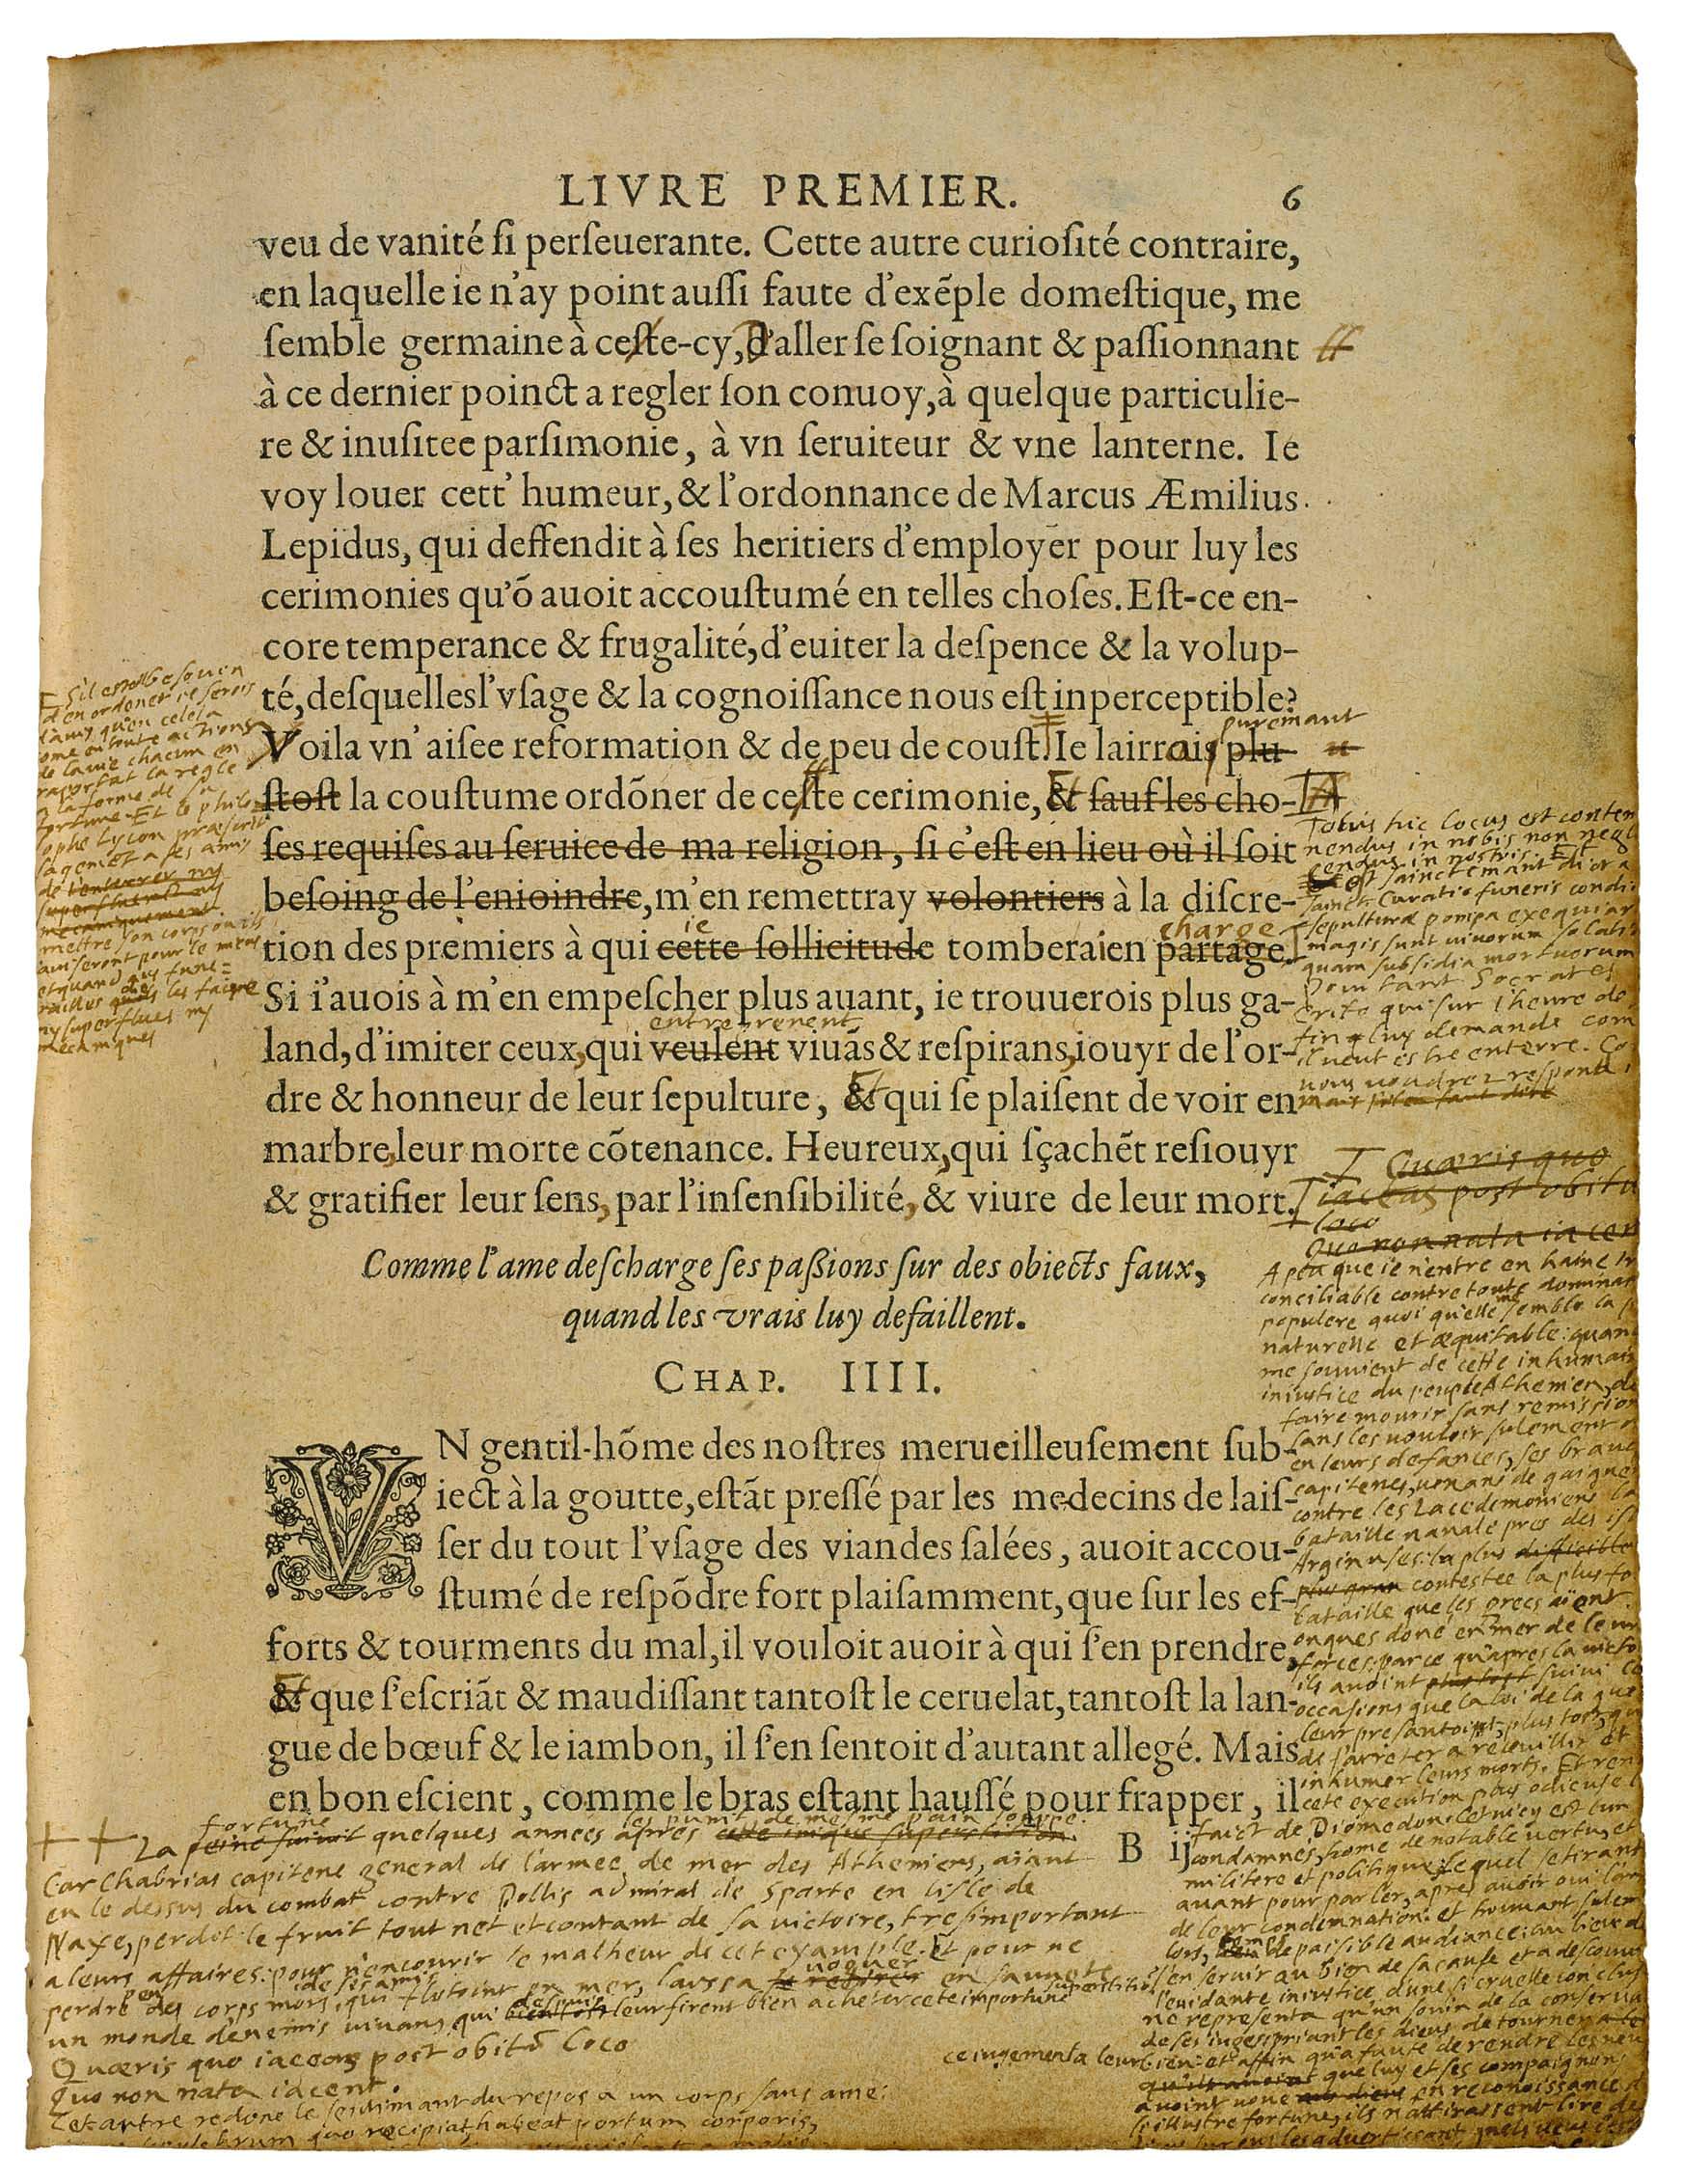 LIVRE PREMIER. 6
veu de vanité ſi perſeuerante. Cette autre curioſité contraire,
en laquelle ie n'ay point auſſi faute d'exẽple domeſtique, me
ſemble germaine à ceſte-cy, D'aller ſe ſoignant & paſſionnant
à ce dernier poinct a regler ſon conuoy, à quelque particulie-
re & inuſitee parſimonie, à vn ſeruiteur & vne lanterne. Ie
voy louer cett' humeur, & l'ordonnance de Marcus Æmilius
Lepidus, qui deffendit à ſes heritiers d'employer pour luy les
cerimonies qu'õ auoit accouſtumé en telles choſes. Eſt-ce en-
core temperance & frugalité, d'euiter la deſpence & la volup-
té, deſquelles l'vſage & la cognoiſſance nous eſt inperceptible?
puremant
Voila vn' aiſee reformation & de peu de couſt. Ie lairrois plu-
ſtoſt la couſtume ordõner de ceſte cerimonie, & ſauf les cho-
ſes requiſes au ſeruice de ma religion, ſi c'eſt en lieu où il ſoit
beſoing de l'enioindre, m'en remettray volontiers à la diſcre-
ie charge
tion des premiers à qui cette ſollicitude tomberaien partage.
Si i'auois à m'en empeſcher plus auant, ie trouuerois plus ga-
entreprenent
land, d'imiter ceux, qui veulent viuãs & reſpirans, iouyr de l'or-
dre & honneur de leur ſepulture, Et qui ſe plaiſent de voir en
marbre, leur morte cõtenance. Heureux, qui ſçachẽt reſiouyr
& gratifier leur ſens, par l'inſenſibilité, & viure de leur mort.
Comme l'ame deſcharge ſes paſſions ſur des obiects faux,
quand les vrais luy defaillent.
CHAP. IIII.
VN gentil-hõme des noſtres merueilleuſement ſub-
iect à la goutte, eſtãt preſſé par les medecins de laiſ-
ſer du tout l'vſage des viandes ſalées, auoit accou-
ſtumé de reſpõdre fort plaiſamment, que ſur les ef-
forts & tourments du mal, il vouloit auoir à qui ſ'en prendre,
Et que ſ'eſcriãt & maudiſſant tantoſt le ceruelat, tantoſt la lan-
gue de bœuf & le iambon, il ſ'en ſentoit d'autant allegé. Mais
en bon eſcient, comme le bras eſtant hauſſé pour frapper, il
B ij
S'il estoit besouin
d'en ordoner ie serois
d'avis qu'en celela
come en toute actions
de la vie chacun en
raportat la regle
a la forme de sa
fortune. Et le philo
sophe Lycon præscrit
sagemet a ses amis
de l'enterrer ny
superfluemant ny
mechaniquement
mettre son corps ou ils
aviseront pour le mieus
et quand aus fune=
railles de les faire
ny superflues ny
mechaniques
Totus hic locus est contem
nendus in nobis non negl
gendus in nostris. Et
est sainctemant dict a
Curatio funeris condi
sepulturæ pompa exequiar
magis sunt vivorum solati
quam subsidia mortuorum
Pourtant Socrates
Crito qui sur l'heure de
fin luy demande com
il veut estre enterre. Co
vous voudrez respont i
Quæris quo
iaceas post obitu
loco
Quo non nata iacen
A peu que ie n'entre en haine ir
conciliable contre toute dominat
populere quoi qu'elle me semble la
naturelle et æquitable: quan
me souvient de cette inhumain
iniustice du peuple Athenien, de
faire mourir sans remission
sans les vouloir sulement o
en leurs defances, ses brave
capitenes, venans de gaigner
contre les Lacedemoniens la
bataille navale pres des isl
Arginuses: la plus difficible
plus gran contestee la plus fo
bataille que les grecs aïent
onques done en mer de leur
forces: parce qu'apres la victo
ils avoint plus tost suivi
occasions que la loi de la gue
leur presantoint, plus tost qu
de s'arreter a recueillir et
inhumer leurs morts. Et ren
cete execution plus odieuse
faict de Diomedon: Cetuicy est l'un
condamnes, home de notable vertu, et
militere et politique: lequel se tirant
avant pour parler, apres avoir oui l'arr
de leur condemnation: et trouvant sulem
lors, temps de paisible audiance: au lieu de
s'en servir au bien de sa cause et a descouvr
l'evidante iniustice d'une si cruelle conclus
ne representa qu'un souin de la conserva
de ses iuges: priant les dieus de tourner
ce iugement a leur bien: et affin qu'a faute de rendre les veu
qu'ils avoint que luy et ses compaignon
avoint voue en reconoissance d
si illustre fortune, ils n'attirassent l'ire de
La fortune quelques annees apres les punit de mesme pain soupe.
Car Chabrias capitene general de l'armee de mer des Atheniens, aiant
eu le dessus du combat contre Pollis admiral de Sparte en l'isle de
Naxe, perdit le fruit tout net et contant de sa victoire, tresimportant
a leurs affaires: pour n'encourir le malheur de cet example. Et pour ne
perdre peu des corps mors de ses amis, qui flotoint en mer, laissa voguer en sauvete
un monde d'enemis vivans, qui despuis leur firent bien acheter cete importune superstition
Quæris quo iaceas post obitũ loco
Quo non nata iacent.
Cet autre redone le sentimant du repos a un corps sans ame:
quo recipiat, habeat portum corporis,